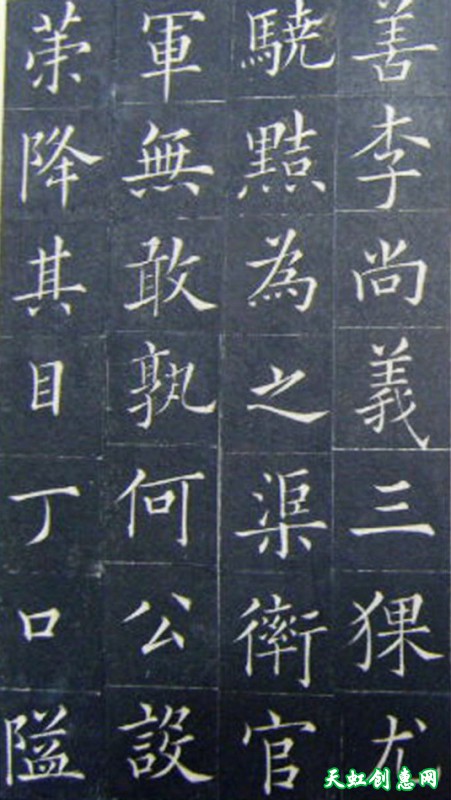 善李尚義三猓尤
驍黠為之渠官
軍無敢孰何公設
茦降其目丁口隘
天虹创惠网